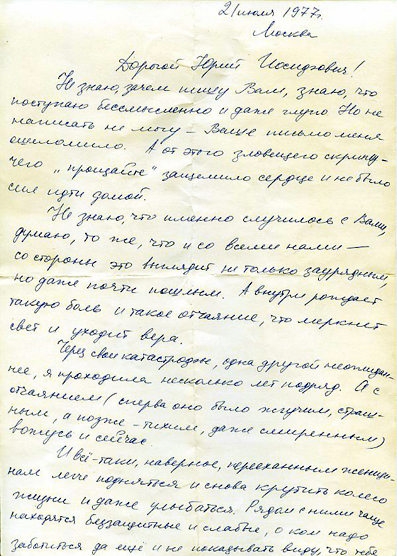 21 июля 1977г.
Москва
Дорогой Юрий Иосифович!
Не знаю, зачем пишу Вам, знаю, что
поступаю бессмысленно и даже глупо. Но не
написать не могу – Ваше письмо меня
ошеломило. А от этого зловещего скрипу-
чего „прощайте" защемило сердце и не было
сил идти домой.
Не знаю, что именно случилось с Вами,
думаю, то же, что и со всеми нами –
со стороны это выглядит не только заурядным,
но даже почти пошлым. А внутри рождает
такую боль и такое отчаяние, что меркнет
свет и уходит вера.
Через свои катастрофы, одна другой неожидан-
нее, я проходила несколько лет подряд. А с
отчаянием (сперва оно было жгучим, страш-
ным, а позже – тихим, даже смиренным)
вожусь и сейчас
И всё-таки, наверное, перееханным женщи-
нам легче подняться и снова крутить колесо
жизни и даже улыбаться. Рядом с ними чаще
находятся беззащитные и слабые, о ком надо
заботиться да ещё и не показывать виду, что тебе